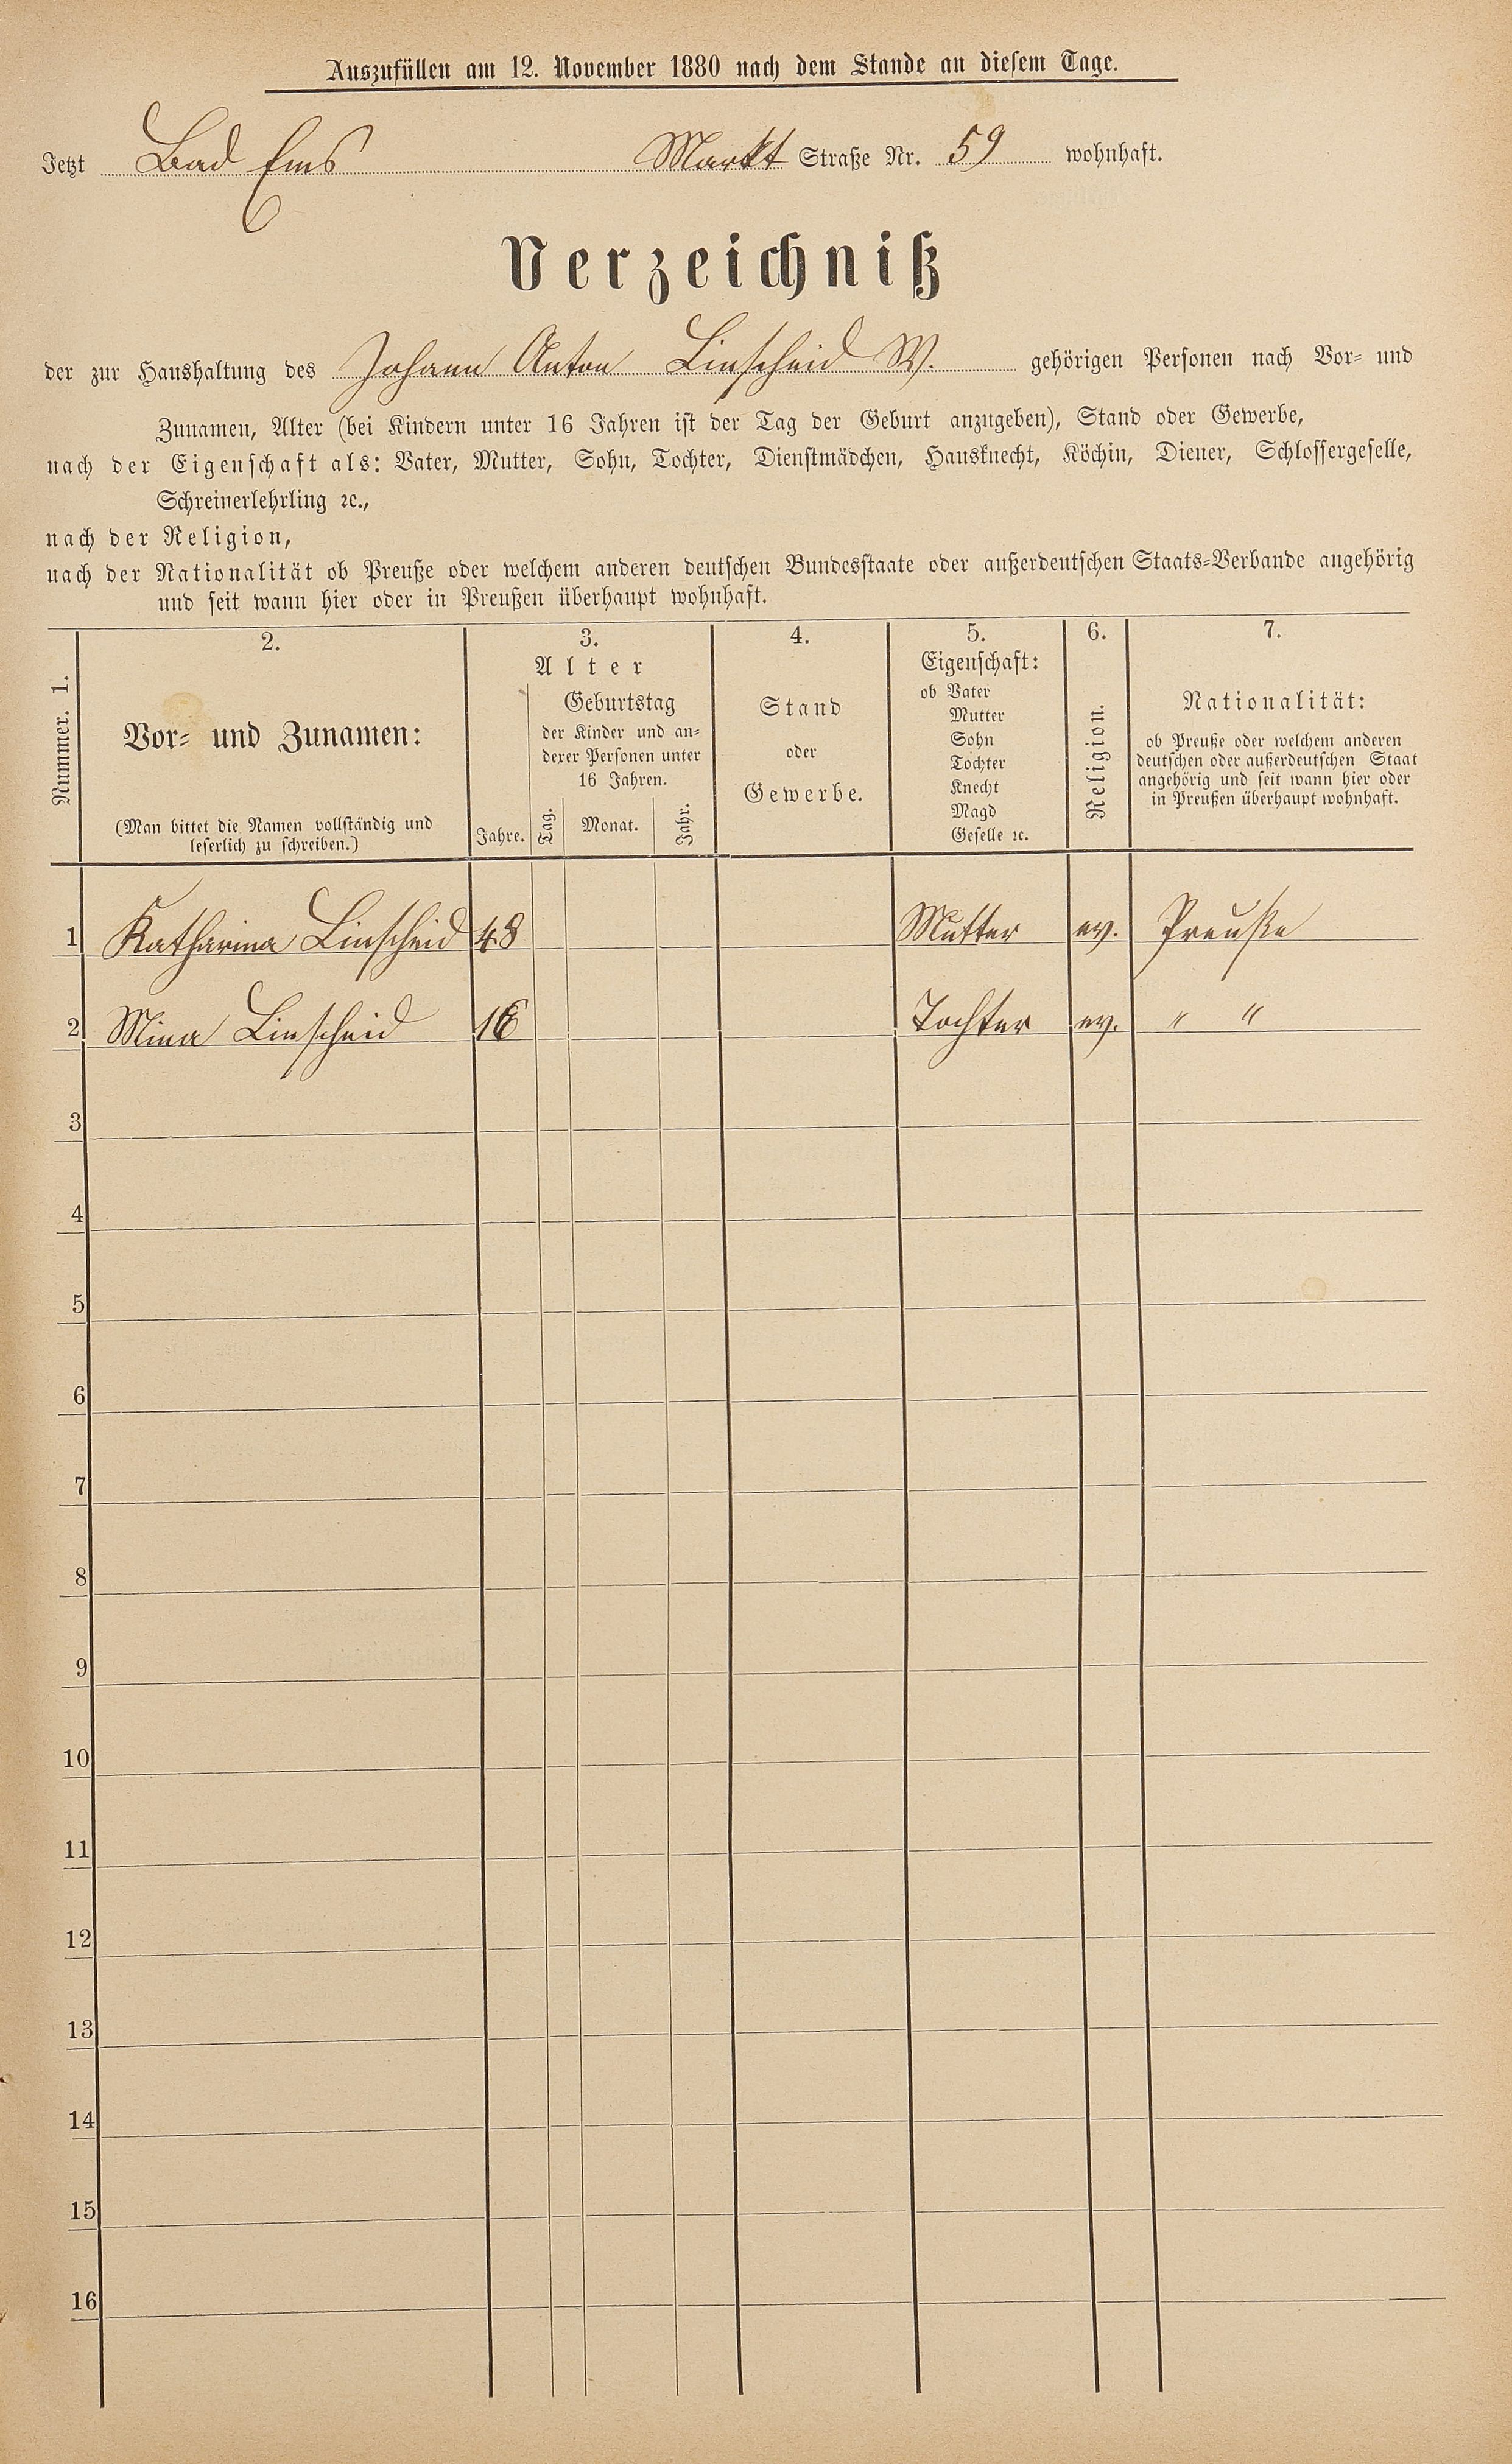 Auszufüllen am 12. November 1880 nach dem Stande an diesem Tage.
Jetzt Bad Ems Markt Straße Nr. 59 wohnhaft.
Verzeichniß
der zur Haushaltung des Johann Anton Linscheid W. gehörigen Personen nach Vor- und
Zunamen, Alter (bei Kindern unter 16 Jahren ist der Tag der Geburt anzugeben), Stand oder Gewerbe,
nach der Eigenschaft als: Vater, Mutter, Sohn, Tochter, Dienstmädchen, Hausknecht, Köchin, Diener, Schlossergeselle,
Schreinerlehrling ꝛc.,
nach der Religion,
nach der Nationalität ob Preuße oder welchem anderen deutschen Bundesstaate oder außerdeutschen Staats-Verbande angehörig
und seit wann hier oder in Preußen überhaupt wohnhaft.
Nummer. 1.
2.
Vor- und Zunamen:
(Man bittet die Namen vollständig und
leserlich zu schreiben.)
3.
Alter
Jahre.
Geburtstag
der Kinder und an-
derer Personen unter
16 Jahren.
Tag.
Monat.
Jahr.
4.
Stand
oder
Gewerbe.
5.
Eigenschaft:
ob Vater
Mutter
Sohn
Tochter
Knecht
Magd
Geselle ꝛc.
6.
Religion.
7.
Nationalität:
ob Preuße oder welchem anderen
deutschen oder außerdeutschen Staat
angehörig und seit wann hier oder
in Preußen überhaupt wohnhaft.
1 Katharina Linscheid 48 Mutter ev. Preuße
2 Mina Linscheid 16 Tochter ev. " "
3
4
5
6
7
8
9
10
11
12
13
14
15
16